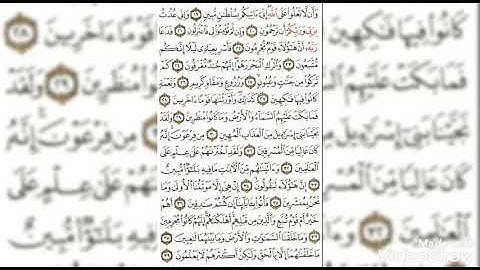 وَأَن لَّا تَعْلُوا۟ عَلَى ٱللَّهِ إِنِّىٓ ءَاتِيكُم بِسُلْطَٰنٍ مُّبِينٍ ١٩ وَإِنِّى عُذْتُ
بِرَبِّى وَرَبِّكُمْ أَن تَرْجُمُونِ ٢٠ وَإِن لَّمْ تُؤْمِنُوا۟ لِى فَٱعْتَزِلُونِ ٢١ فَدَعَا
رَبَّهُۥٓ أَنَّ هَٰٓؤُلَآءِ قَوْمٌ مُّجْرِمُونَ ٢٢ فَأَسْرِ بِعِبَادِى لَيْلًا إِنَّكُم
مُّتَّبَعُونَ ٢٣ وَٱتْرُكِ ٱلْبَحْرَ رَهْوًا إِنَّهُمْ جُندٌ مُّغْرَقُونَ ٢٤ كَمْ
تَرَكُوا۟ مِن جَنَّٰتٍ وَعُيُونٍ ٢٥ وَزُرُوعٍ وَمَقَامٍ كَرِيمٍ ٢٦ وَنَعْمَةٍ
كَانُوا۟ فِيهَا فَٰكِهِينَ ٢٧ كَذَٰلِكَ وَأَوْرَثْنَٰهَا قَوْمًا ءَاخَرِينَ ٢٨
فَمَا بَكَتْ عَلَيْهِمُ ٱلسَّمَآءُ وَٱلْأَرْضُ وَمَا كَانُوا۟ مُنظَرِينَ ٢٩ وَلَقَدْ
نَجَّيْنَا بَنِىٓ إِسْرَٰٓءِيلَ مِنَ ٱلْعَذَابِ ٱلْمُهِينِ ٣٠ مِن فِرْعَوْنَ إِنَّهُۥ
كَانَ عَالِيًا مِّنَ ٱلْمُسْرِفِينَ ٣١ وَلَقَدِ ٱخْتَرْنَٰهُمْ عَلَىٰ عِلْمٍ عَلَى
ٱلْعَٰلَمِينَ ٣٢ وَءَاتَيْنَٰهُم مِّنَ ٱلْءَايَٰتِ مَا فِيهِ بَلَٰٓؤٌا۟ مُّبِينٌ ٣٣
إِنَّ هَٰٓؤُلَآءِ لَيَقُولُونَ ٣٤ إِنْ هِىَ إِلَّا مَوْتَتُنَا ٱلْأُولَىٰ وَمَا
نَحْنُ بِمُنشَرِينَ ٣٥ فَأْتُوا۟ بِـَٔابَآئِنَآ إِن كُنتُمْ صَٰدِقِينَ ٣٦ أَهُمْ
خَيْرٌ أَمْ قَوْمُ تُبَّعٍ وَٱلَّذِينَ مِن قَبْلِهِمْ أَهْلَكْنَٰهُمْ إِنَّهُمْ كَانُوا۟ مُجْرِمِينَ
٣٧ وَمَا خَلَقْنَا ٱلسَّمَٰوَٰتِ وَٱلْأَرْضَ وَمَا بَيْنَهُمَا لَٰعِبِينَ ٣٨
مَا خَلَقْنَٰهُمَآ إِلَّا بِٱلْحَقِّ وَلَٰكِنَّ أَكْثَرَهُمْ لَا يَعْلَمُونَ ٣٩